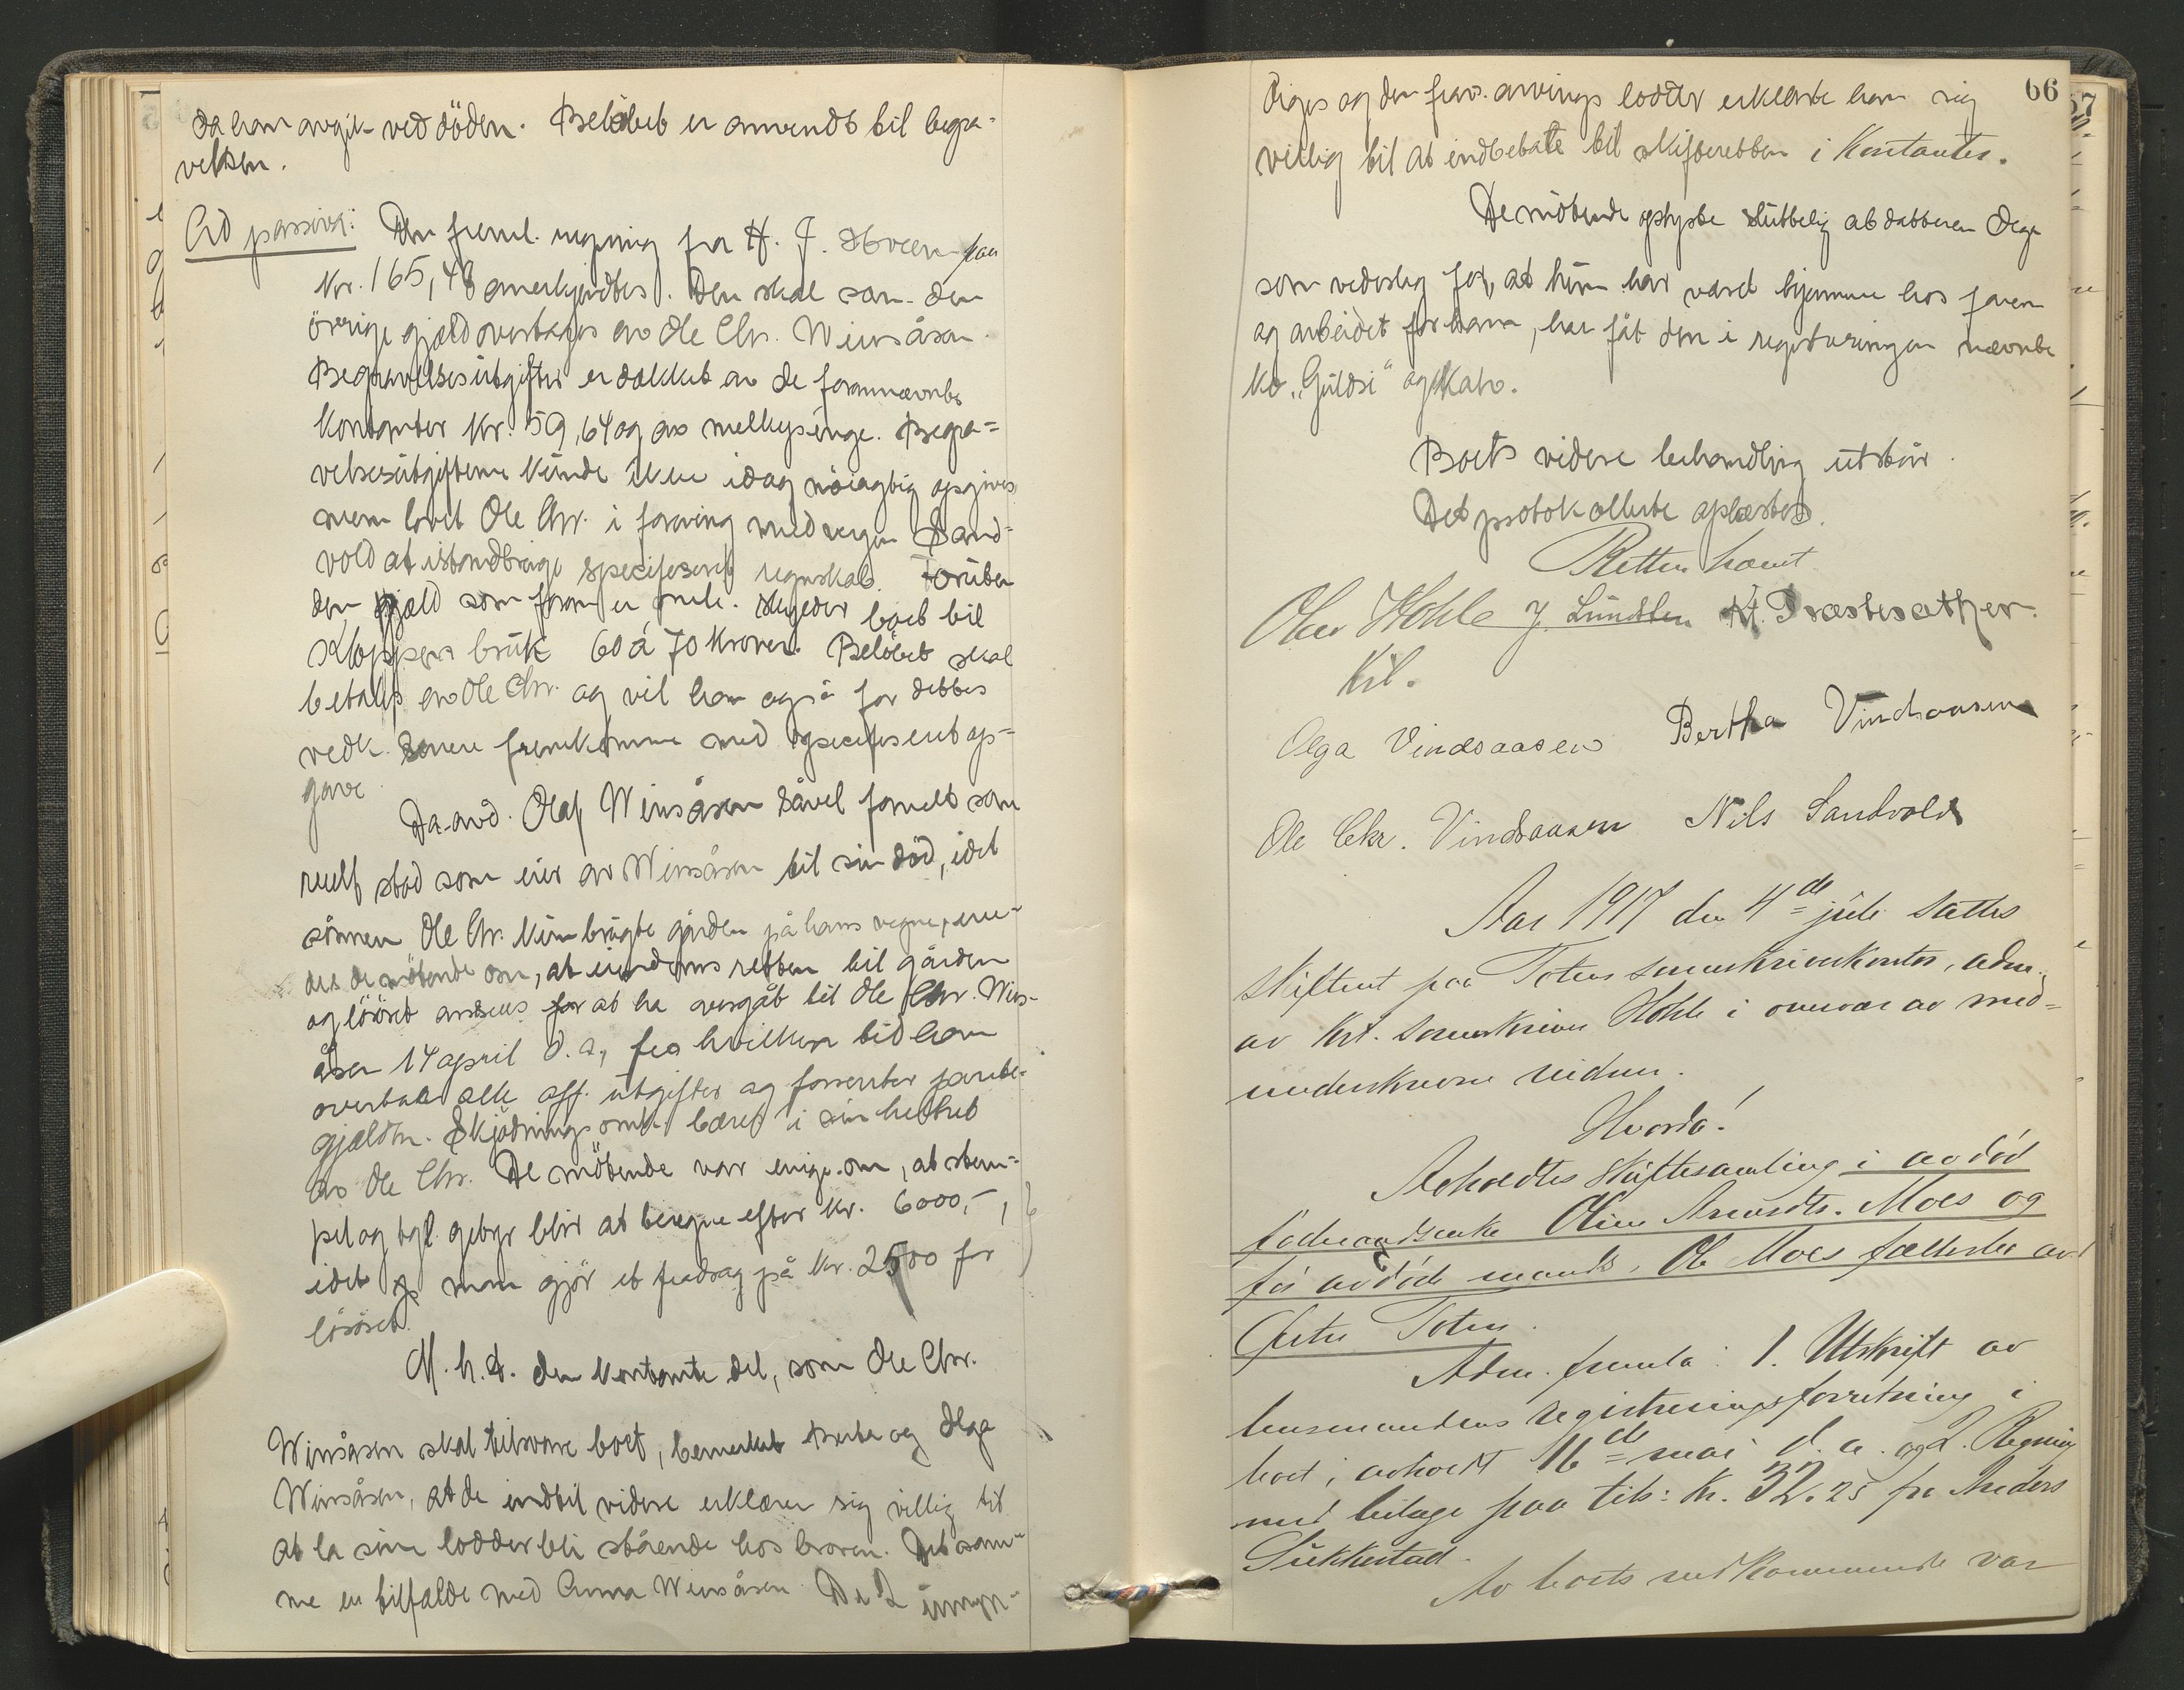 da han avgik ved döden. Belöbet er anvendt til begra-
velsen.
Ad passiva: Den freml. regning fra H. J. Hveem paa
Kr. 165,48 anerkjendtes. Den skal som den
övrige gjæld overtages av Ole Chr. Winsåsen.
Begravelsesutgifter er dækket av de forannævnte
kontanter Kr. 59,64 og av melkepenge. Begra-
velsesutgifterne kunde ikke idag nöiagtig opgives
men lovet Ole Chr. i forening med vergen Sand-
vold at istandbringe specifisert regnskab. Foruten
den gjæld som foran er nævnt skylder boet til
Kloppen bruk 60 á 70 kroner. Belöbet skal
betales av Ole Chr. og vil han også for dettes
vedk. senere fremkomme med specifisert op-
gave.
Da avd. Olaf Winsåsen såvel formelt som
reelt stod som eier av Winsåsen til sin död, idet
sönnen Ole Chr. kun brugte gården på hans vegne, ene-
des de mötende om, at eiendomsretten til gården
og lösöret ansees for at ha overgåt til Ole Chr. Wins-
åsen 14 april d. a., fra hvilken tid han
overtar alle off. utgifter og forrenter pante-
gjælden. Skjödningsomk. bæres i sin helhet
av Ole Chr. De mötende var enige om, at stem-
pel og tgl. gebyr blir at beregne efter kr. 6000,-,
idet man gjör et fradrag på kr. 2500 for
lösöret.
M. h. t. den kontante del, som Ole Chr.
Winsåsen skal tilsvare boet, bemerket Berta og Olga
Winsåsen, at de indtil videre erklærer sig villig til
at la sine lodder bli stående hos broren. Det sam-
me er tilfælde med Anna Winsåsen. De 2 umyn-
66
57
diges og den frav. arvings lodder erklærte han sig
villig til at indbetale til skifteretten i Kontanter.
De mötende oplyste sluttelig at datteren Olga
som vederlag for, at hun har været hjemme hos faren
og arbeidet for ham, har fåt den i registreringen nævnte
ko "Guldsi" og kalv.
Boets videre behandling utstår.
Det protokollerte oplæstes.
Retten hævet
Olav Hohle J. Lundsten M. Præstesæther
Kst.
Olga Vindsaasen Bertha Vindsaasen
Ole Chr. Vindsaasen Nils Sandvold
Aar 1917 den 4de juli sattes
skifteret paa Totens sorenskriverkontor, adm.
av kst. sorenskriver Hohle i overvær av med-
underskrevne vidner.
Hvorda!
Avholdtes skiftesamling i avdöd
föderaadsenke Oline Arnesdtr. Moes og
för avdöde mands, Ole Moes fællesbo av
Östre Toten.
Adm. fremla: 1. Utskrift av
lensmandens registreringsforretning i
boet, avholdt 16de mai d. a. og 2. Regning
med bilage paa tils: Kr. 32.25 fra Anders
Sukkestad.
Av boets vedkommende var